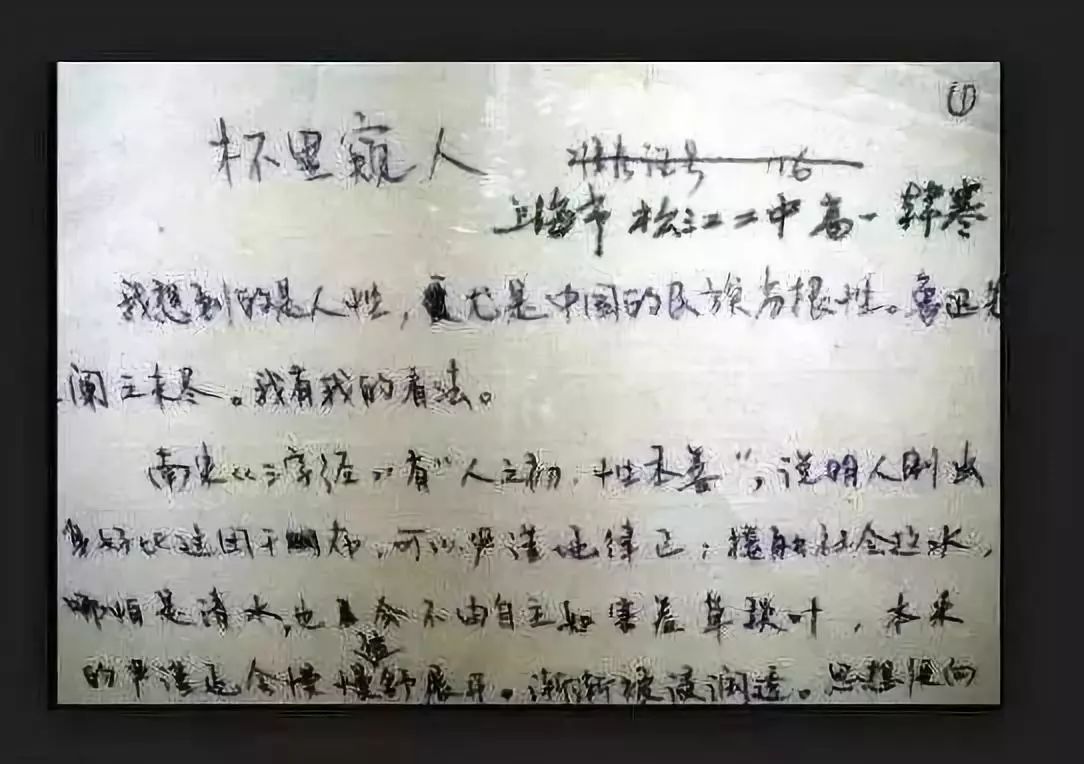 ①
杯里窥人
上海市 松江二中 高一 韩寒
我想到的是人性，尤是中国的民族劣根性。鲁迅先
阐之未尽。我有我的看法。
南宋《三字经》有"人之初，性本善"，说明人刚出
身好比这团干布，可以严谨地律正；接触社会这水，
哪怕是清水，也会不由自主如害羞草收叶，本来
的严谨也会慢慢地舒展开。渐渐被浸润透。思想倾向